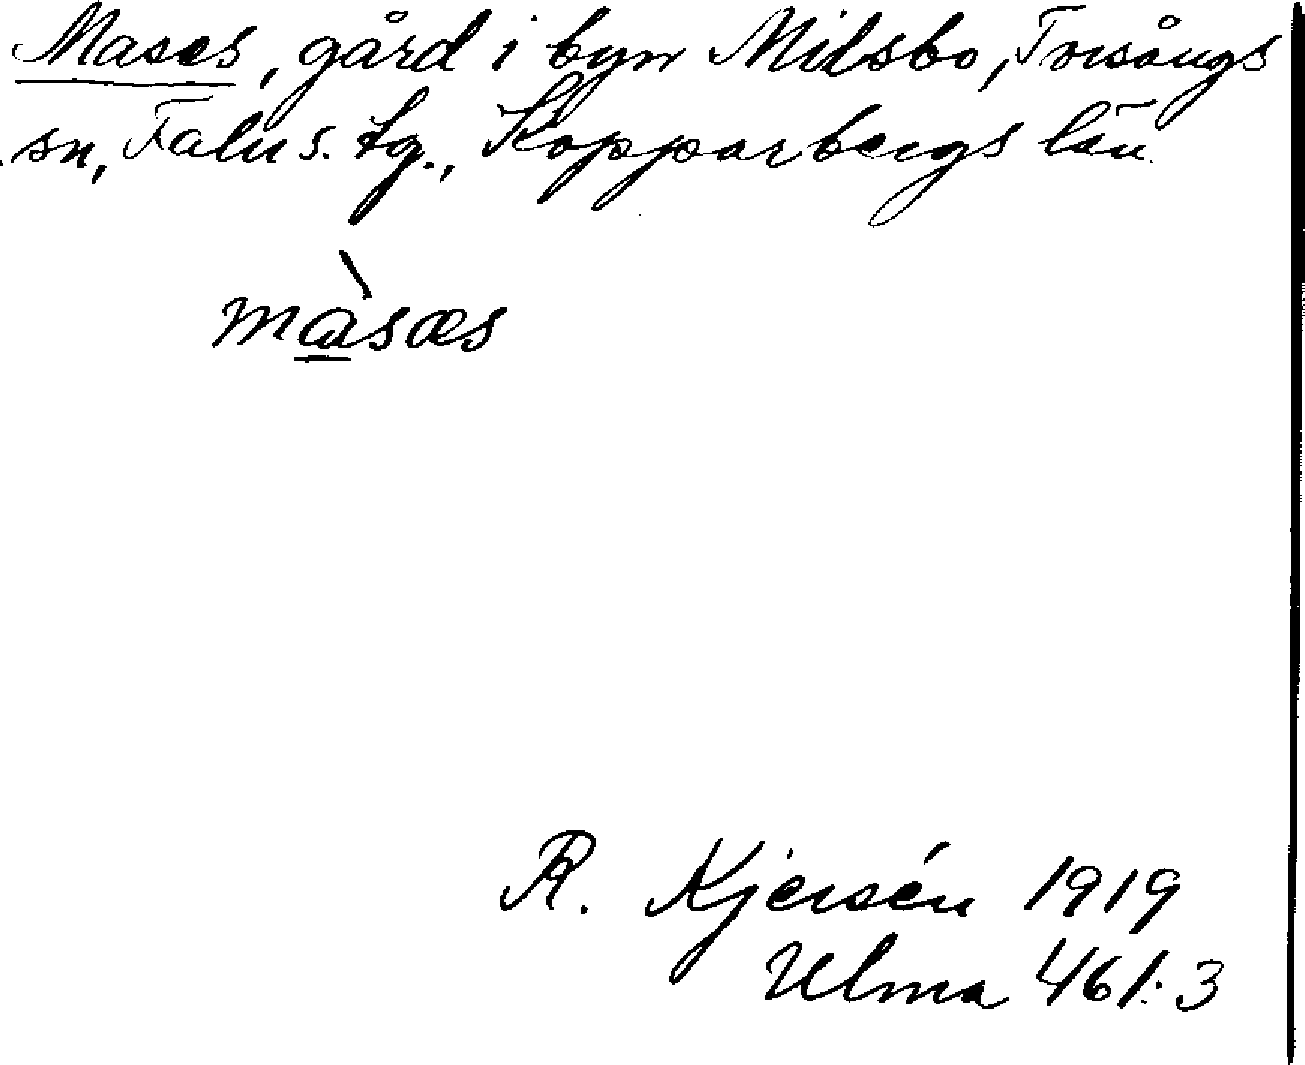 Mases, gård i byn Milsbo, Torsångs
sn, Falu s. tg., Kopparbergs län
màsæs
R. Kjersén 1919
Ulma 461:3